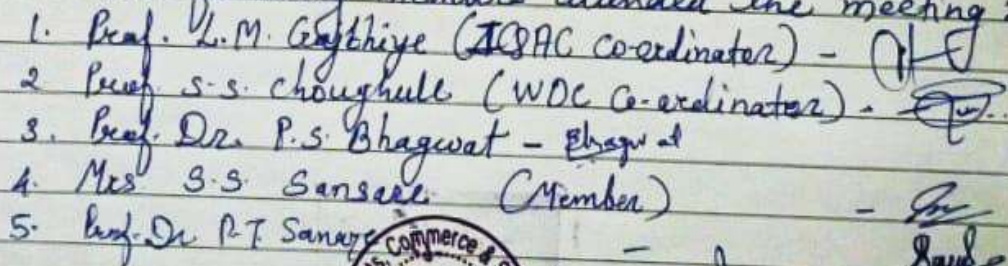 attended the meeting
1. Prof. L.M. Gajbhiye (IQAC Co-ordinator) -
2 Prof S.S. Choughule (WDC Co-ordinator) -
3. Prof. Dr. P.S. Bhagwat - Bhagwat
4. Mrs S.S. Sansare (Member) -
5. Prof. Dr P.T. Sanare -
Commerce &